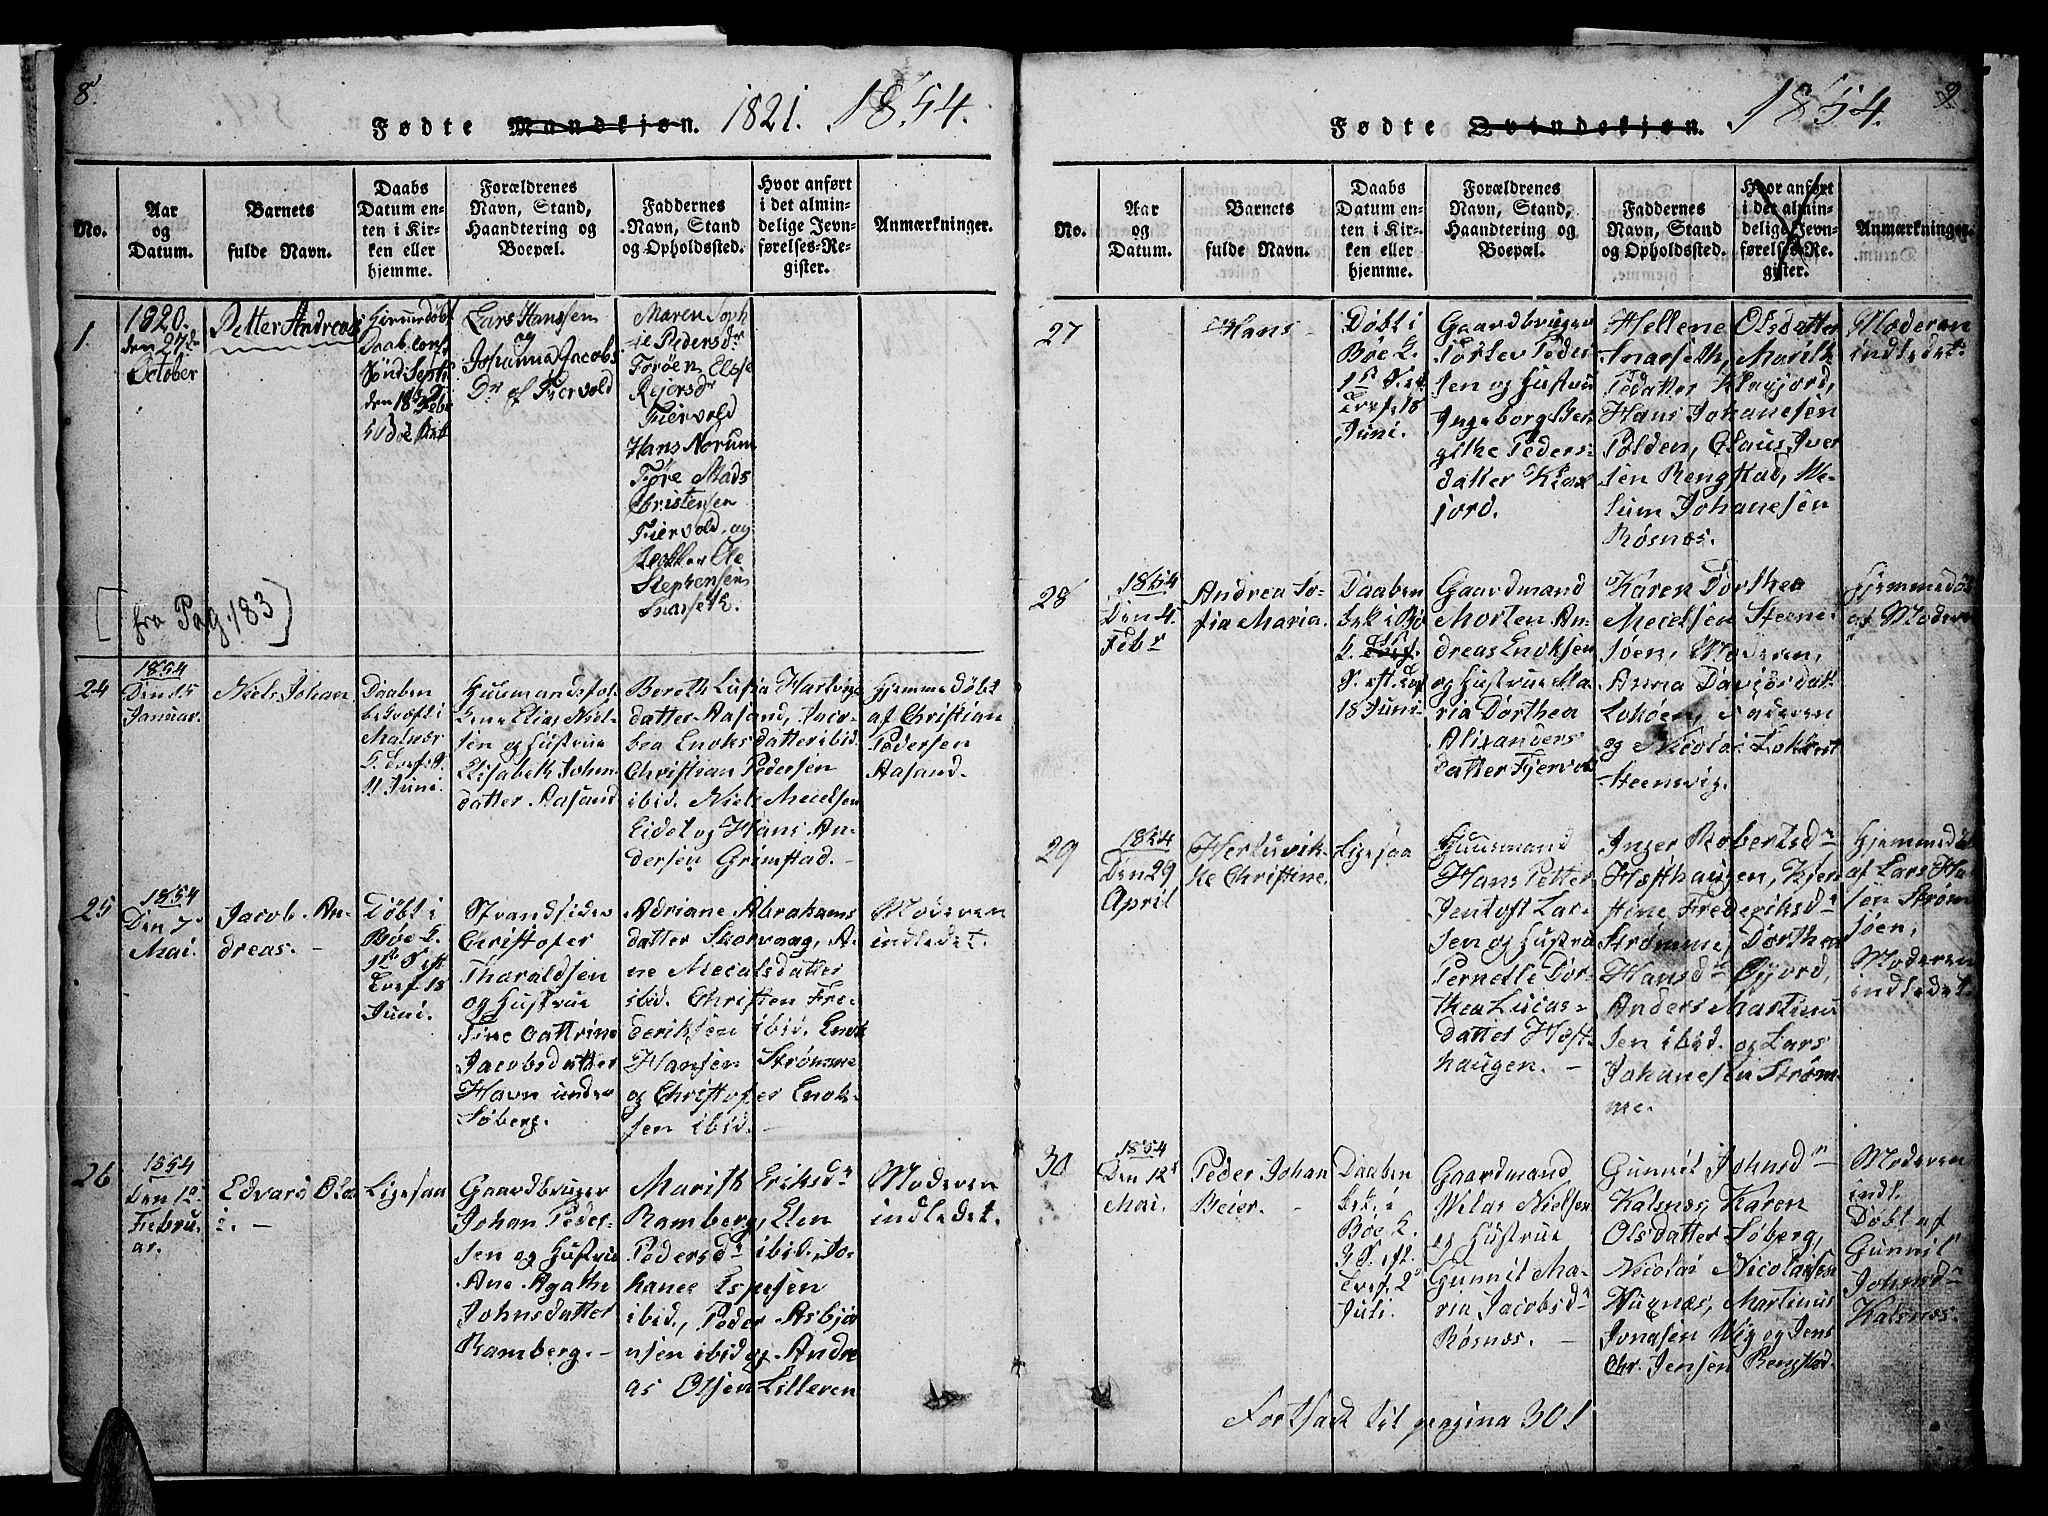 8.
Fødte Mandkjøn. 1821. 1854.
No.
Aar
og
Datum.
Barnets
fulde Navn.
Daabs
Datum en-
ten i Kir-
ken eller
hjemme.
Forældrenes
Navn, Stand,
Haandtering og
Boepæl.
Faddernes
Navn, Stand
og Opholdssted.
Hvor anført
i det almin-
delige Jevn-
førelses-Re-
gister.
Anmærkninger.
1.
1820.
den 27de
October
Petter Andreas
Hjemmedøbt
Daab. conf.
Sønd. Sept
den 18de Feb
Lars Hanssen
og
Johanna Jacobs
Dr af Fiervold
Maren Soph
ie Pedersdr
Forøen, Else
Rejersdr
Fiervold
Hans Norum
Fjøre Mads
Christensen
Fiervold, og
Ole
Stephensen
Snarseth.
[fra Pag. 183]
24
1854
Den 15
Januar.
Niels Johan
Daaben
bekræft i
Malnær
K.
11 Juni.
Huusmandsfol-
kene Elias Niel-
sen og Hustrue
Elisabeth John-
datter Aasand
Bereth Lusia Hartvigs
datter Aasand, Jaco-
bea Enoks datter ibid.
Christian Pedersen
ibid. Niels Meielsen
Eidet og Hans An-
dersen Grimstad. -
Hjemmedøbt
af Christian
Pedersen
Aasand.
25
1854
Den 7de
Mai.
Jacob An-
dreas. -
Døbt i
Bøe K.
1ste S. eft
Tref. 18
Juni.
Strandsider
Christofer
Tharaldsen
og Hustrue
Tine Cattrine
Jacobsdatter
Havn under
Søberg.
Adriane Abrahams
datter Skorvaag, A-
ne Mecalsdatter
ibid. Christen Fre-
deriksen ibid. Enok
Hansen Strømme
og Christofer Enok-
sen ibid. -
Moderen
indledet.
26
1854
Den 12te
Febru-
ar.
Edvard Ola
i. -
Ligesaa
Gaardbruger
Johan Peder-
sen og Hustrue
Ane Agathe
Johnsdatter
Ramberg. -
Marith Eriksdr
Ramberg, Elen
Pedersdr ibid. Jo-
hanes Espesen
ibid., Peder Asbjør
nsen ibid og Andre
as Olsen Lilleren
Moderen
indledet.
9
Fødte Qvindekjøn. 1854.
No.
Aar
og
Datum.
Barnets
fulde Navn.
Daabs
Datum en-
ten i Kir-
ken eller
hjemme.
Forældrenes
Navn, Stand,
Haandtering og
Boepæl.
Faddernes
Navn, Stand
og Opholdssted.
Hvor anført
i det almin-
delige Jevn-
førelses-Re-
gister.
Anmærkninger.
27
Hans
Døbt i
Bøe K.
1ste S. eft
Tref. 18
Juni.
Gaardbruger
Torlev Peder
sen og Hustrue
Ingeborg Ber
githe Peders-
datter Klax
jord.
Hellene Olsdatter
Snarseth, Marith
Pedatter Klaxjord,
Hans Johanesen
Polden, Claus Iver
sen Rengstad, We-
lum Johanesen
Røsnæs.
Moderen
indledet.
28
1854
Den 4.
Febr
Andrea So-
fia Maria.
Daaben
bek i Bø
K.
S. eft. Tref
18 Juni.
Gaardmand
Morten An-
dreas Enoksen
og Hustrue Ma-
ria Dorthea
Alixanders
datter Fjervol
Karen Dorthea
Meielsen Steene-
søen, Moderen,
Anna Davidsdatt
Lokøen, Faderen
og Nicolai Lokkert
Steensvig.
Hjemmedøbt
af Moderen
29
1854
Den 29
April
Herluvik-
ke Christine.
Ligesaa
Huusmand
Hans Petter
Jentoft Lar-
sen og Hustrue
Pernelle Dor-
thea Lucas-
datter Høst-
haugen. -
Inger Robertsdr
Høsthaugen, Kjer
stine Frederiksdr
Strømme, Dorthea
Hansdr Øjord,
Anders Martinus
sen ibid. og Lars
Johanesen Strøm-
me.
Hjemmedøbt
af Lars Ha
sen Strøm
søen,
Moderen
indledet.
30
1854
Den 12te
Mai.
Peder Johan
Beier. -
Daaben
bek. i
Bøe K.
3 S. eft.
Tref. 2d
Juli.
Gaardmand
Wilas Nielsen
og Hustrue
Gunnil Ma-
ria Jacobsdr
Røsnæs. -
Gunnil Johnsdr
Kalsnæs, Karen
Olsdatter Søberg,
Nicolai Nicolaisen
Nygnæs, Martinus
Jonasen Wig og Jens
Chr. Jensen Rengstad
Moderen
indl.
Døbt af
Gunnil
Johnsdr
Kalsnæs.
Fortsadt til pagina 301